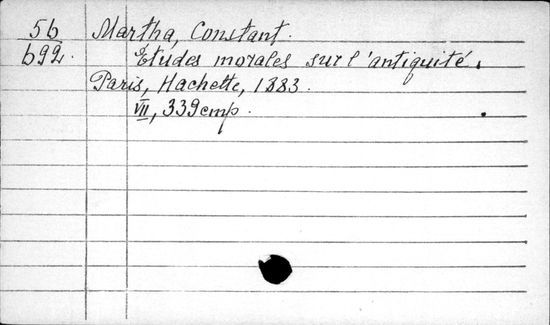 56 Martha, Constant.
692. Etudes morales sur l'antiquité.
Paris, Hachette, 1883.
VII, 339 стр.